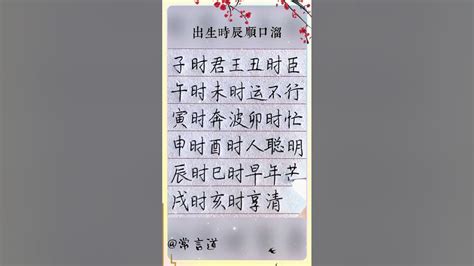 出生時辰順口溜
子时君王丑时臣
午时未时运不行
寅时奔波卯时忙
申时酉时人聪明
辰时巳时早年芒
戌时亥时享清
@常言道